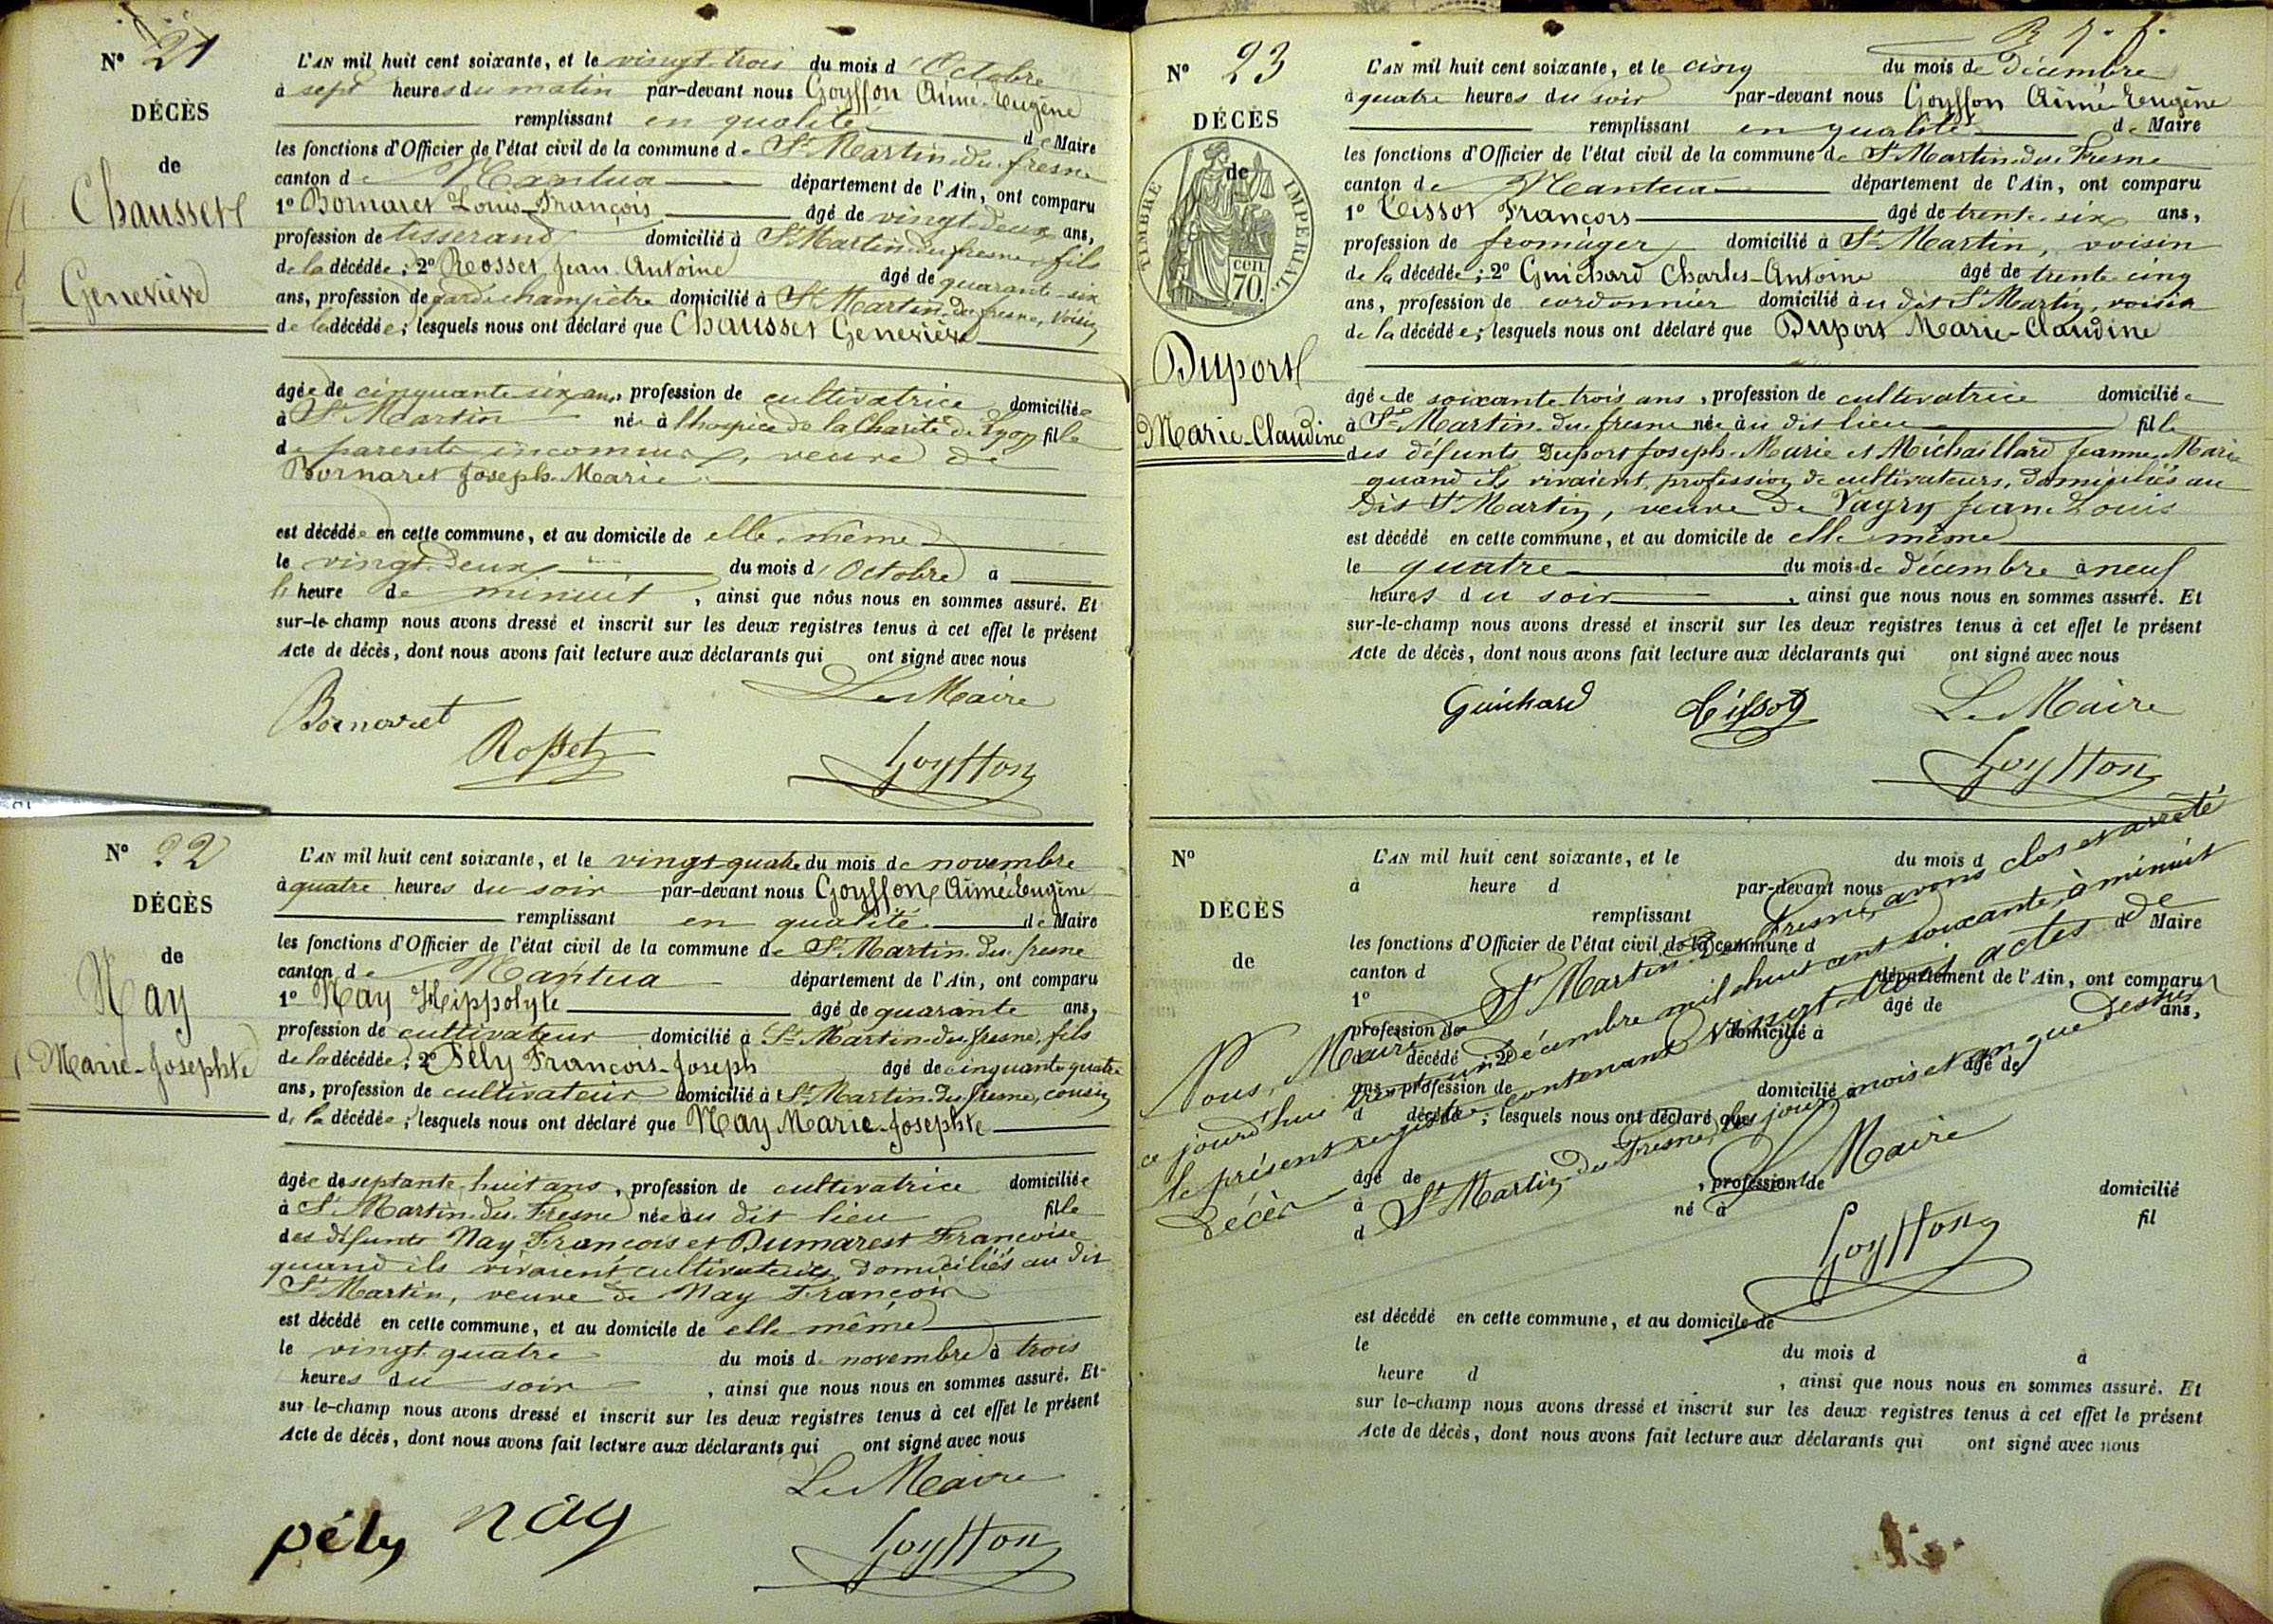 N° 21
DÉCÈS
de
Chausset
Geneviève
L'AN mil huit cent soixante, et le vingt trois du mois d'Octobre
à sept heures du matin par-devant nous Goyffon Aimé-Eugène
remplissant en qualité de Maire
les fonctions d'Officier de l'état civil de la commune de St Martin-du-fresne
canton de Nantua département de l'Ain, ont comparu
1° Bornaret Louis-François âgé de vingt-deux ans,
profession de tisserand domicilié à St Martin-du-fresne, fils
de la décédée; 2° Rosset Jean-Antoine âgé de quarante-six
ans, profession de garde champêtre domicilié à St Martin-du-fresne, voisin
de la décédée; lesquels nous ont déclaré que Chausset Geneviève
âgée de cinquante six ans, profession de cultivatrice domiciliée
à St Martin née à l'hospice de la Charité de Lyon fille
de parents inconnus, veuve de
Bornaret Joseph-Marie
est décédée en cette commune, et au domicile de elle-même
le vingt-deux du mois d'Octobre à
l'heure de minuit, ainsi que nous nous en sommes assuré. Et
sur-le-champ nous avons dressé et inscrit sur les deux registres tenus à cet effet le présent
Acte de décès, dont nous avons fait lecture aux déclarants qui ont signé avec nous
Le Maire
Bornaret
Rosset
Goyffon
N° 22
DÉCÈS
de
Nay
Marie-Josephte
L'AN mil huit cent soixante, et le vingt-quatre du mois de novembre
à quatre heures du soir par-devant nous Goyffon Aimé-Eugène
remplissant en qualité de Maire
les fonctions d'Officier de l'état civil de la commune de St Martin-du-fresne
canton de Nantua département de l'Ain, ont comparu
1° Nay Hippolyte âgé de quarante ans,
profession de cultivateur domicilié à St Martin-du-fresne, fils
de la décédée; 2° Pély François-Joseph âgé de cinquante quatre
ans, profession de cultivateur domicilié à St Martin-du-fresne, cousin
de la décédée; lesquels nous ont déclaré que Nay Marie-Josephte
âgée de septante huit ans, profession de cultivatrice domiciliée
à St Martin-du-Fresne née au dit lieu fille
des défunts Nay François et Dumarest Françoise
quand ils vivaient cultivateurs, domiciliés au dit
St Martin, veuve de Nay François
est décédé en cette commune, et au domicile de elle même
le vingt quatre du mois de novembre à trois
heures du soir, ainsi que nous nous en sommes assuré. Et
sur-le-champ nous avons dressé et inscrit sur les deux registres tenus à cet effet le présent
Acte de décès, dont nous avons fait lecture aux déclarants qui ont signé avec nous
Le Maire
pély nay
Goyffon
N° 23
DÉCÈS
de
TIMBRE IMPERIAL
CEN. 70.
Duport
Marie-Claudine
L'AN mil huit cent soixante, et le cinq du mois de Décembre
à quatre heures du soir par-devant nous Goyffon Aimé-Eugène
remplissant en qualité de Maire
les fonctions d'Officier de l'état civil de la commune de St Martin-du-Fresne
canton de Nantua département de l'Ain, ont comparu
1° Tissot François âgé de trente-six ans,
profession de fromager domicilié à St Martin, voisin
de la décédée; 2° Guichard Charles-Antoine âgé de trente cinq
ans, profession de cordonnier domicilié au dit St Martin, voisin
de la décédée; lesquels nous ont déclaré que Duport Marie-Claudine
âgée de soixante-trois ans, profession de cultivatrice domiciliée
à St Martin-du-fresne née au dit lieu fille
des défunts Duport Joseph-Marie et Michaillard Jeanne-Marie
quand ils vivaient, profession de cultivateurs, domiciliés au
dit St Martin, veuve de Vagry Jean-Louis
est décédé en cette commune, et au domicile de elle même
le quatre du mois de décembre à neuf
heures du soir, ainsi que nous nous en sommes assuré. Et
sur-le-champ nous avons dressé et inscrit sur les deux registres tenus à cet effet le présent
Acte de décès, dont nous avons fait lecture aux déclarants qui ont signé avec nous
Guichard Tissot Le Maire
Goyffon
N°
DÉCÈS
de
L'AN mil huit cent soixante, et le du mois d
à heure d par-devant nous
remplissant d Maire
les fonctions d'Officier de l'état civil de la commune d
canton d département de l'Ain, ont comparu
1° âgé de ans,
profession de domicilié à
d décédé ; 2° âgé de
ans, profession de domicilié à
d décédé ; lesquels nous ont déclaré que
âgé de , profession de domicilié
à né à fil
d
est décédé en cette commune, et au domicile de
le du mois d à
heure d , ainsi que nous nous en sommes assuré. Et
sur le-champ nous avons dressé et inscrit sur les deux registres tenus à cet effet le présent
Acte de décès, dont nous avons fait lecture aux déclarants qui ont signé avec nous
Nous, Maire de St Martin-du-Fresne, avons clos et arrêté
ce jourd'hui trente-un Décembre mil huit cent soixante, à minuit
le présent registre contenant vingt-trois actes de
Décès
St Martin-du-Fresne, les jour, mois et an que dessus
Le Maire
Goyffon